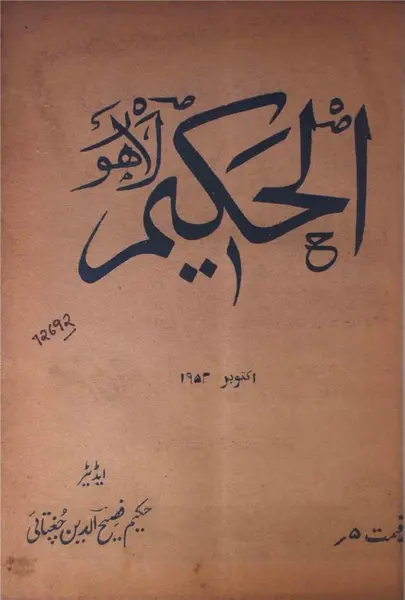 الحکیم
لاہور
72692
اکتوبر ۱۹۵۳
ایڈیٹر
حکیم فصیح الدین چغتائی
قیمت ۵؍